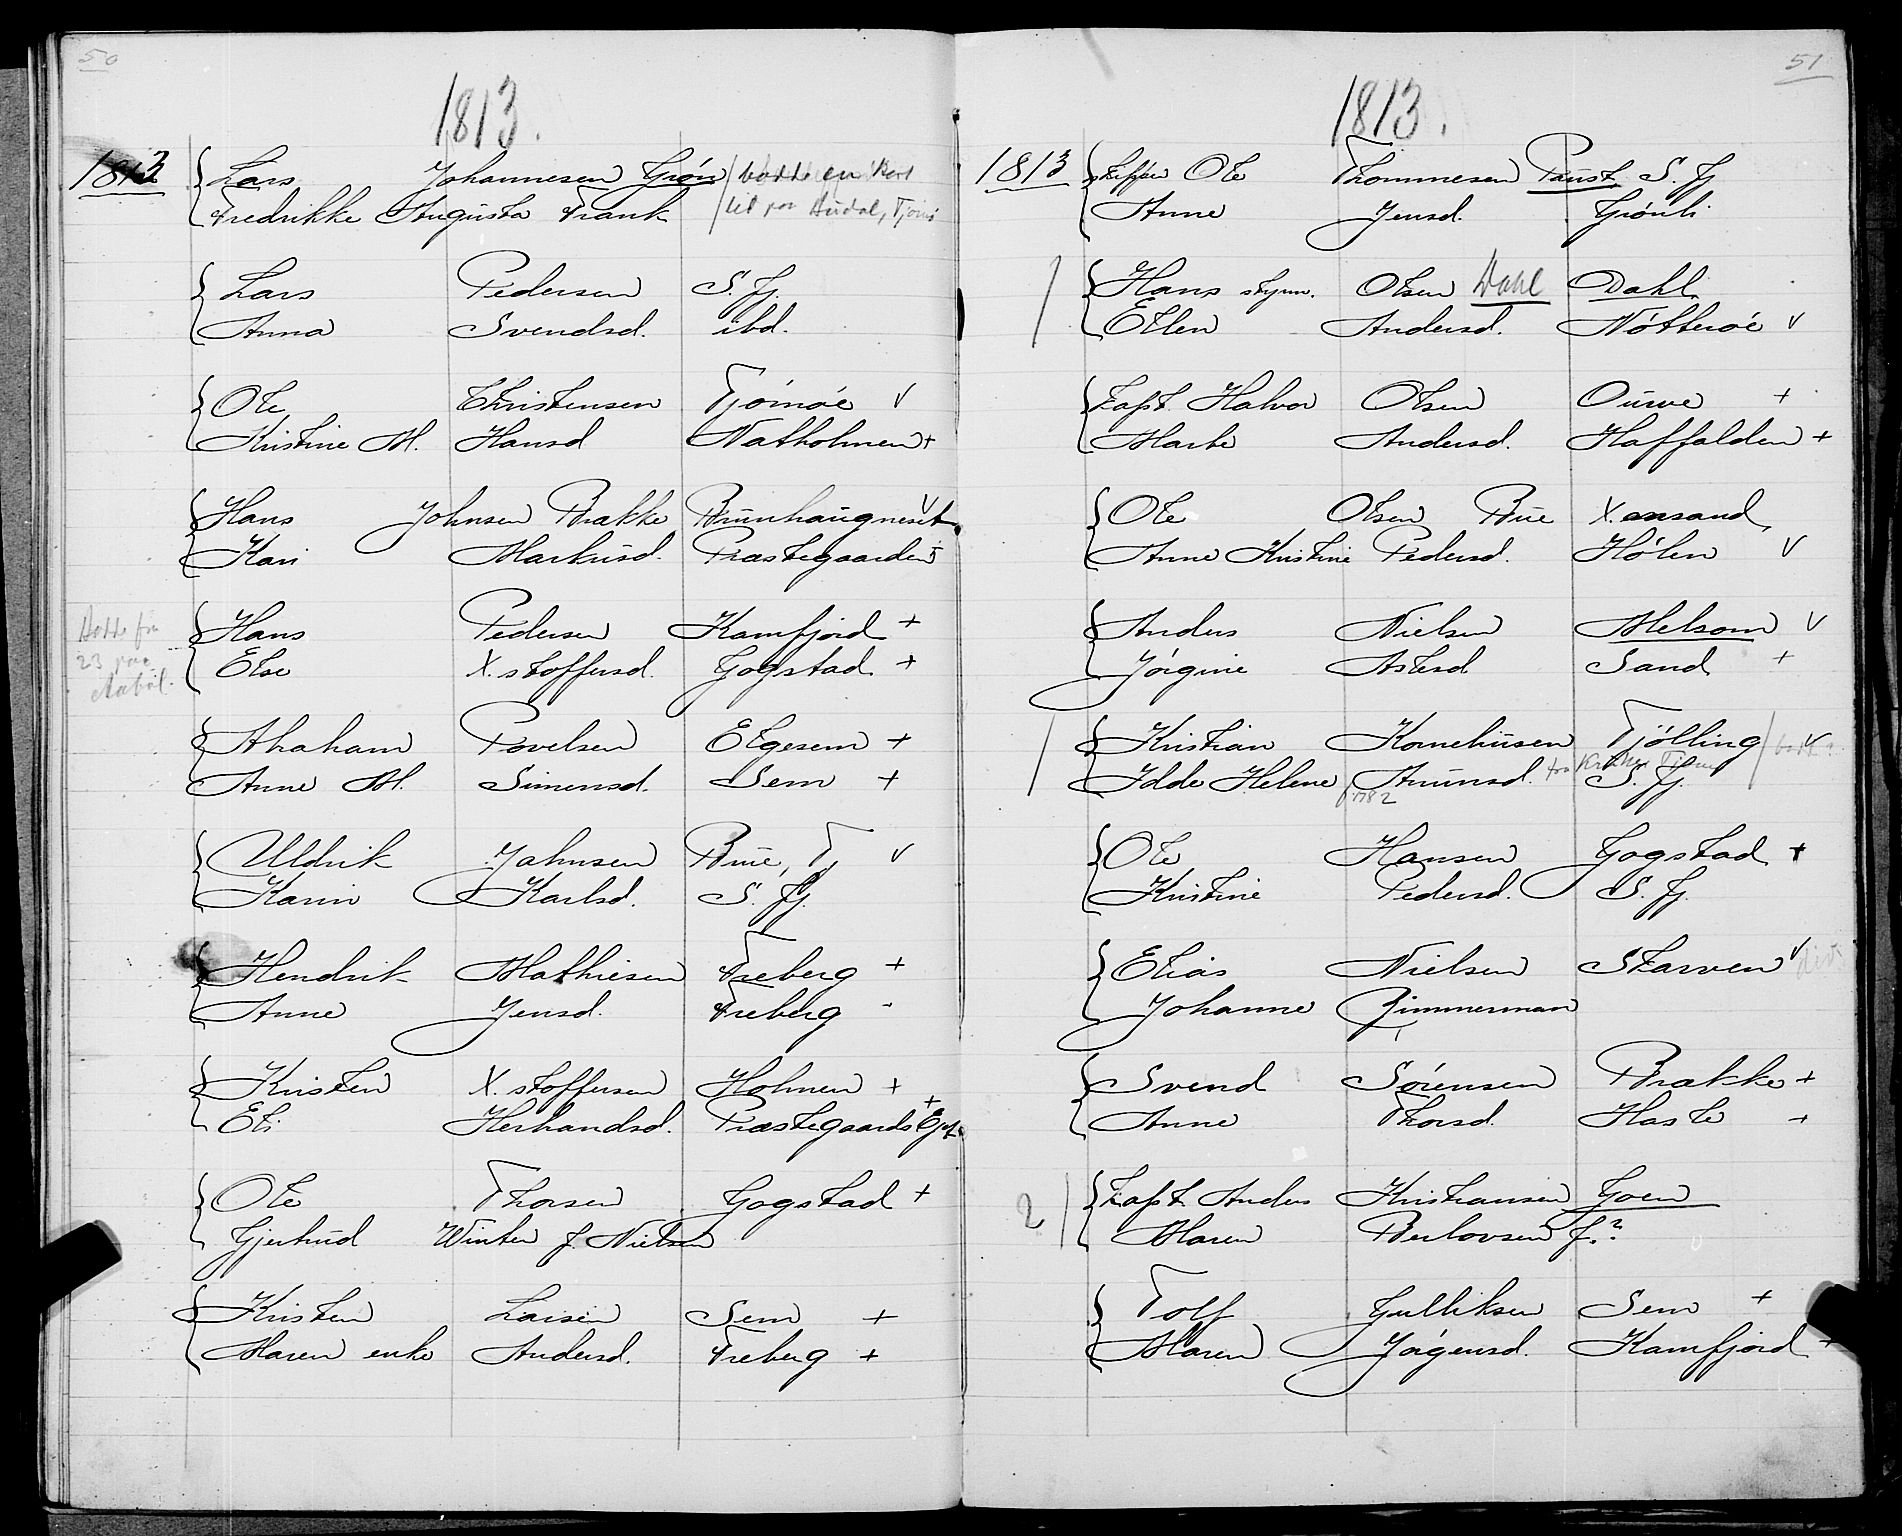 50
1813.
1813 Lars Johannesen Grøn
Fredrikke Augusta Frank
Lars Pedersen S. Fj.
Anna Svendsd. ibd.
Ole Christensen Tjømøe v
Kristine M. Hansd Natholmen +
Hans Johnsen Brække Brunhaugneset v
Kari Markusd. Præstegaarden
Hans Pedersen Kamfjord +
Else X.stoffersd. Gogstad +
23 paa
Abraham Povelsen Elgesem +
Anne M. Simensd. Sem +
Uldrik Johnsen Bue, Tj v
Karin Karlsd. S. Fj.
Hendrik Mathiesen Freberg +
Anne Jensd. Freberg -
Kristen X.stoffersen Holmen +
Eli Herbandsd. Præstegaards Ejet. +
Ole Thorsen Gogstad +
Gjertrud Winter f. Nielsen
Kristen Larsen Sem +
Maren enke Andersd. Freberg +
51
1813.
1813 skipper Ole Thommesen Paust, S. Fj
Anne Jensd. Grønli
Hans styrm. Olsen Dahl Dahl
Ellen Andersd. Nøtterøe v
Kapt. Halvor Olsen Ourve +
Marte Andersd. Haffalden +
Ole Olsen Bue X.ansand,
Anne Kristine Pedersd. Hølen v
Anders Nielsen Melsom v
Jørgine Aslesd Sand +
Kristian Korneliusen Tjølling v
Idde Helene Amunsd. S. Fj.
f. 1782
Ole Hansen Gogstad +
Kristine Pedersd. S. Fj.
Elias Nielsen Skarven v
Johanne Zimmerman
Svend Sørensen Brække +
Anne Thorsd. Hasle +
2 Kapt. Anders Kristiansen Goen
Maren Berlovsen f.?
Tolf Gulliksen Sem +
Maren Jørgensd. Kamfjord +